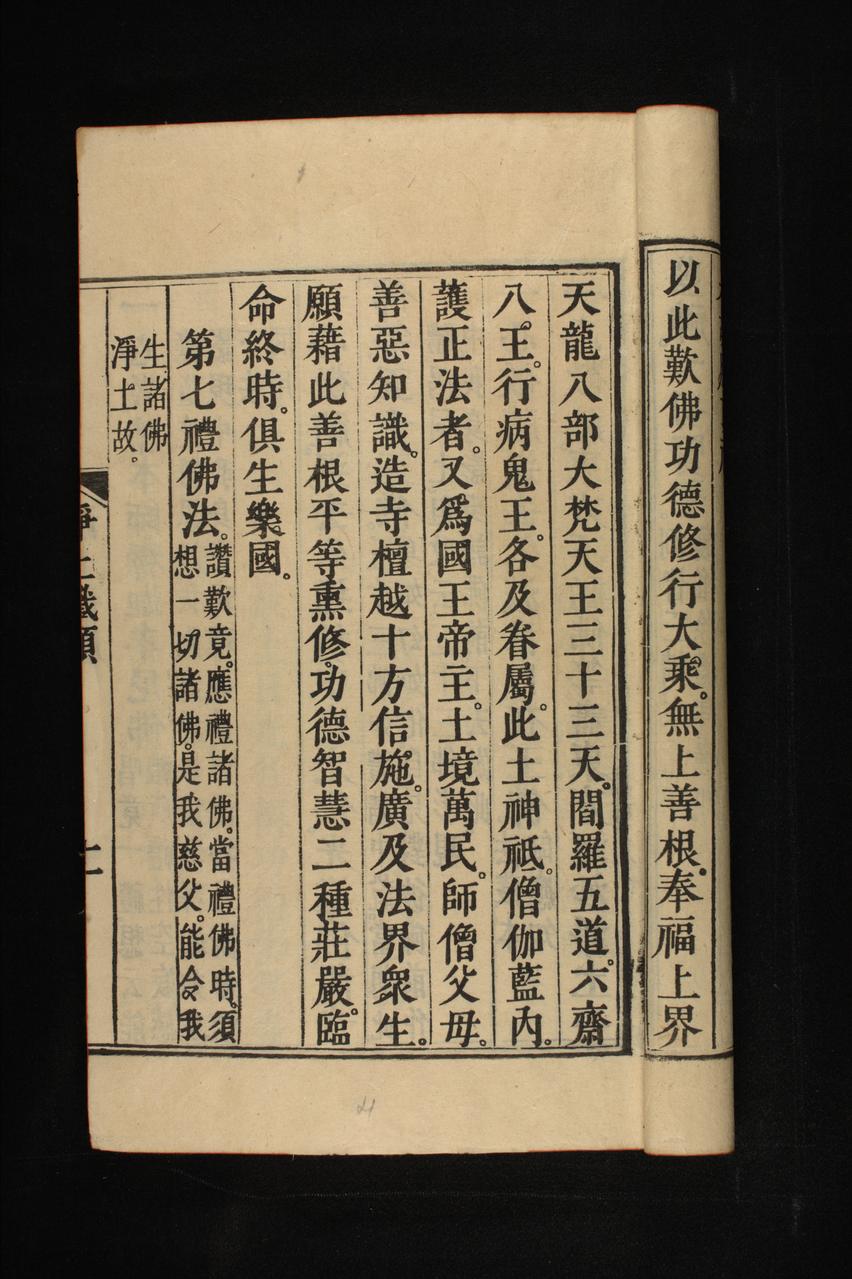 以此歎佛功德修行大乘。無上善根。奉福上界
天龍八部大梵天王三十三天。閻羅五道。六齋
八。王。行病鬼王。各及眷屬。此土神祇。僧伽藍內。
護正法者。又爲國王帝主。土境萬民。師僧父母。
善惡知識。造寺檀越十方信施。廣及法界衆生。
願藉此善根平等熏修。功德智慧二種莊嚴。臨
命終時。俱生樂國。
第七禮佛法。讚歎竟。應禮諸佛。當禮佛時。須
想一切諸佛。是我慈父。能令我
生諸佛
淨土故。